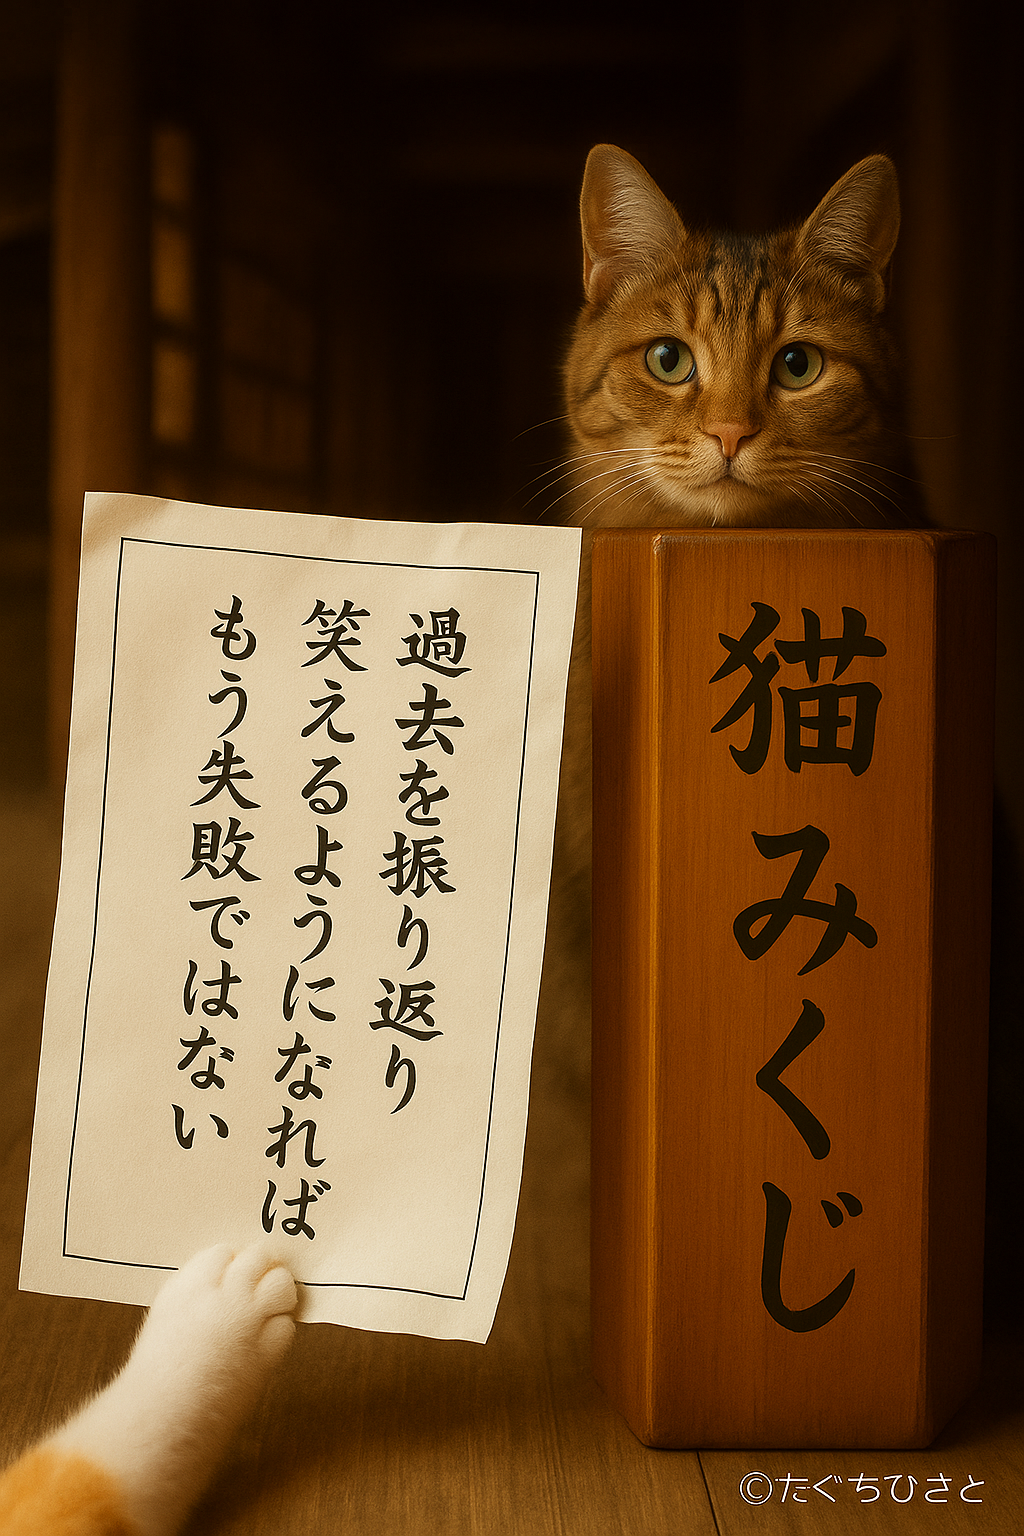 過去を振り返り
笑えるようになれば
もう失敗ではない
猫みくじ
©たぐちひさと